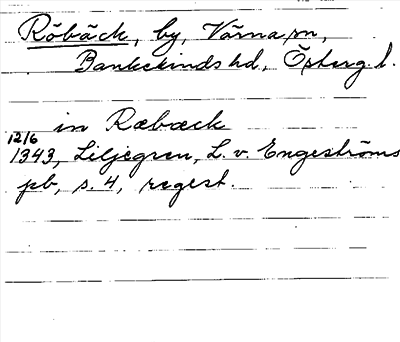 Röbäck, by, Värna sn,
Bankekinds hd, Östergl.
in Ræbæck
12/6
1343, Liljegren, L. v. Engeströms
pb, s. 4, regest.